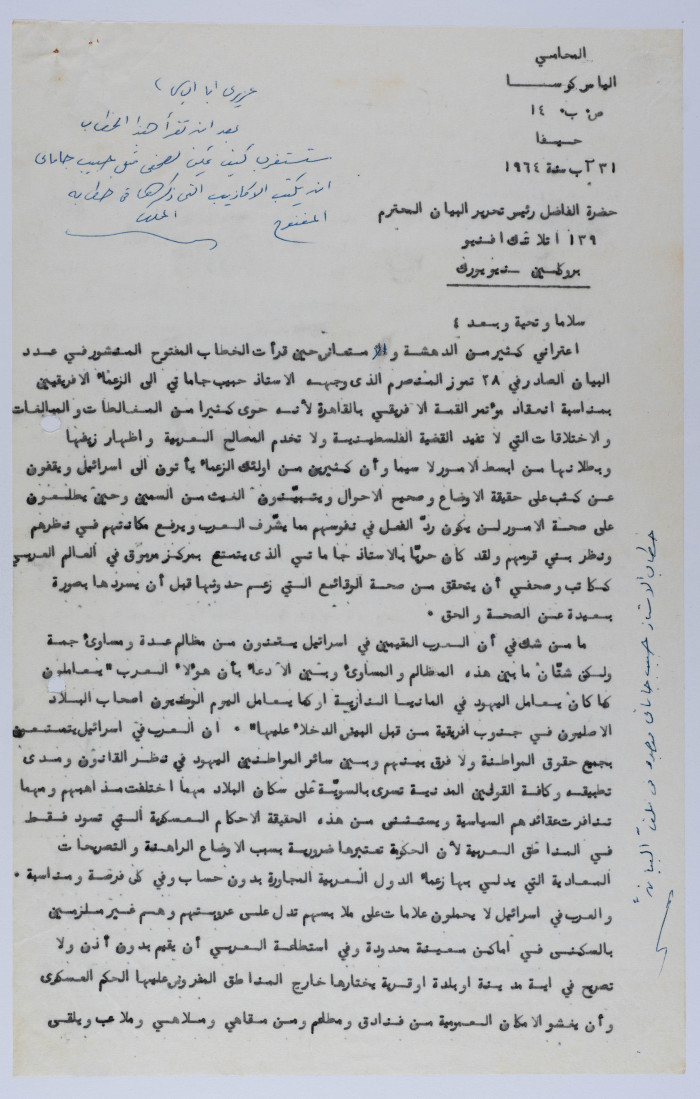 المحامي
الياس كوسا
ص٠ ب٠ ١٤
حيفا
٣١ آب سنة ١٩٦٤
حضرة الفاضل رئيس تحرير البيان المحترم
١٣٩ اتلانتك افنيو
بروكلين نيويورك
عزيزي ابا الياس،
بعد ان تقرأ هذا الخطاب
ستستغرب كيف يمكن لصحفي مثل حبيب جاماتي
ان يكتب الاكاذيب التي ذكرها في خطابه
المفتوح
سلاما وتحية وبعد ٤
اعتراني كثير من الدهشة والامتعاض حين قرأت الخطاب المفتوح المنشور في عدد
البيان الصادر في ٢٨ تموز المنصرم الذى وجهه الاستاذ حبيب جاماتي الى الزعماء الافريقيين
بمناسبة انعقاد مؤتمر القمة الافريقي بالقاهرة لأنه حوى كثيرا من المغالطات والمبالغات
والاختلاقات التي لا تفيد القضية الفلسطينية ولا تخدم المصالح العربية واظهار زيفها
وبطلانها من ابسط الامور لا سيما وأن كثيرين من اولئك الزعماء يأتون الى اسرائيل ويقفون
عن كثب على حقيقة الاوضاع وصحيح الاحوال ويتبيّنون الغث من السمين وحين يطلعون
على صحة الامور لن يكون ردّ الفعل في نفوسهم مما يشّرف العرب ويرفع مكانتهم في نظرهم
ونظر بني قومهم ولقد كان حريّا بالاستاذ جاماتي الذى يتمتع بمركز مرموق في العالم العربي
ككاتب وصحفي أن يتحقق من صحة الوقائع التي زعم حدوثها قبل أن يسردها بصورة
بعيدة عن الصحة والحق ٠
ما من شك في أن العرب المقيمين في اسرائيل يعانون من مظالم عدة ومساوئ جمة
ولكن شتّان ما بين هذه المظالم والمساوئ وبين الادعاء بأن هؤلاء العرب "يعاملون
كما كان يعامل اليهود في المانيا النازية او كما يعامل اليوم الوطنيون اصحاب البلاد
الاصليون في جنوب افريقية من قبل البيض الدخلاء عليها" ٠ ان العرب في اسرائيل يتمتعون
بجميع حقوق المواطنة ولا فرق بينهم وبين سائر المواطنين اليهود في نظر القانون ومدى
تطبيقه وكافة القوانين المدنية تسرى بالسويّة على سكان البلاد مهما اختلفت مذاهبهم ومهما
تنافرت عقائدهم السياسية ويستثنى من هذه الحقيقة الاحكام العسكرية التي تسود فقط
في المناطق العربية لأن الحكومة تعتبرها ضرورية بسبب الاوضاع الراهنة والتصريحات
المعادية التي يدلي بها زعماء الدول العربية المجاورة بدون حساب وفي كل فرصة ومناسبة ٠
والعرب في اسرائيل لا يحملون علامات على ملابسهم تدل على عروبتهم وهم غير ملزمين
بالسكنى في اماكن معينة محدودة وفي استطاعة العربي أن يقيم بدون أذن ولا
تصريح في اية مدينة او بلدة او قرية يختارها خارج المناطق المفروض عليها الحكم العسكرى
وأن يغشو الامكان العمومية من فنادق ومطاعم ومن مقاهي وملاهي وملاعب ويلقى
خطاب الاستاذ حبيب جاماتي